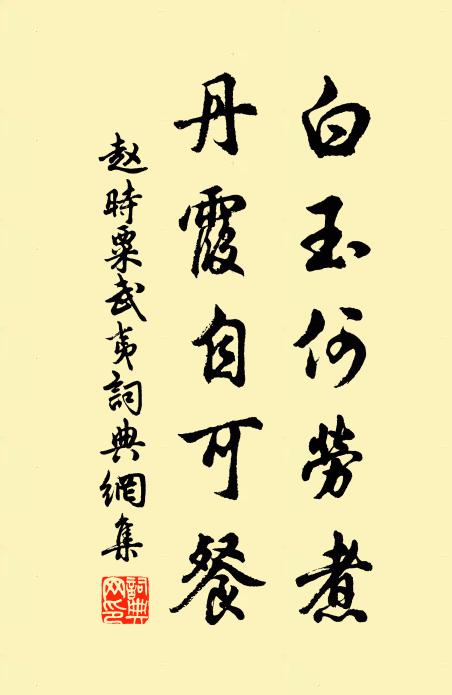 白玉何勞煮
丹霞自可餐
赵時粟武夷詞典網集
詞典網印